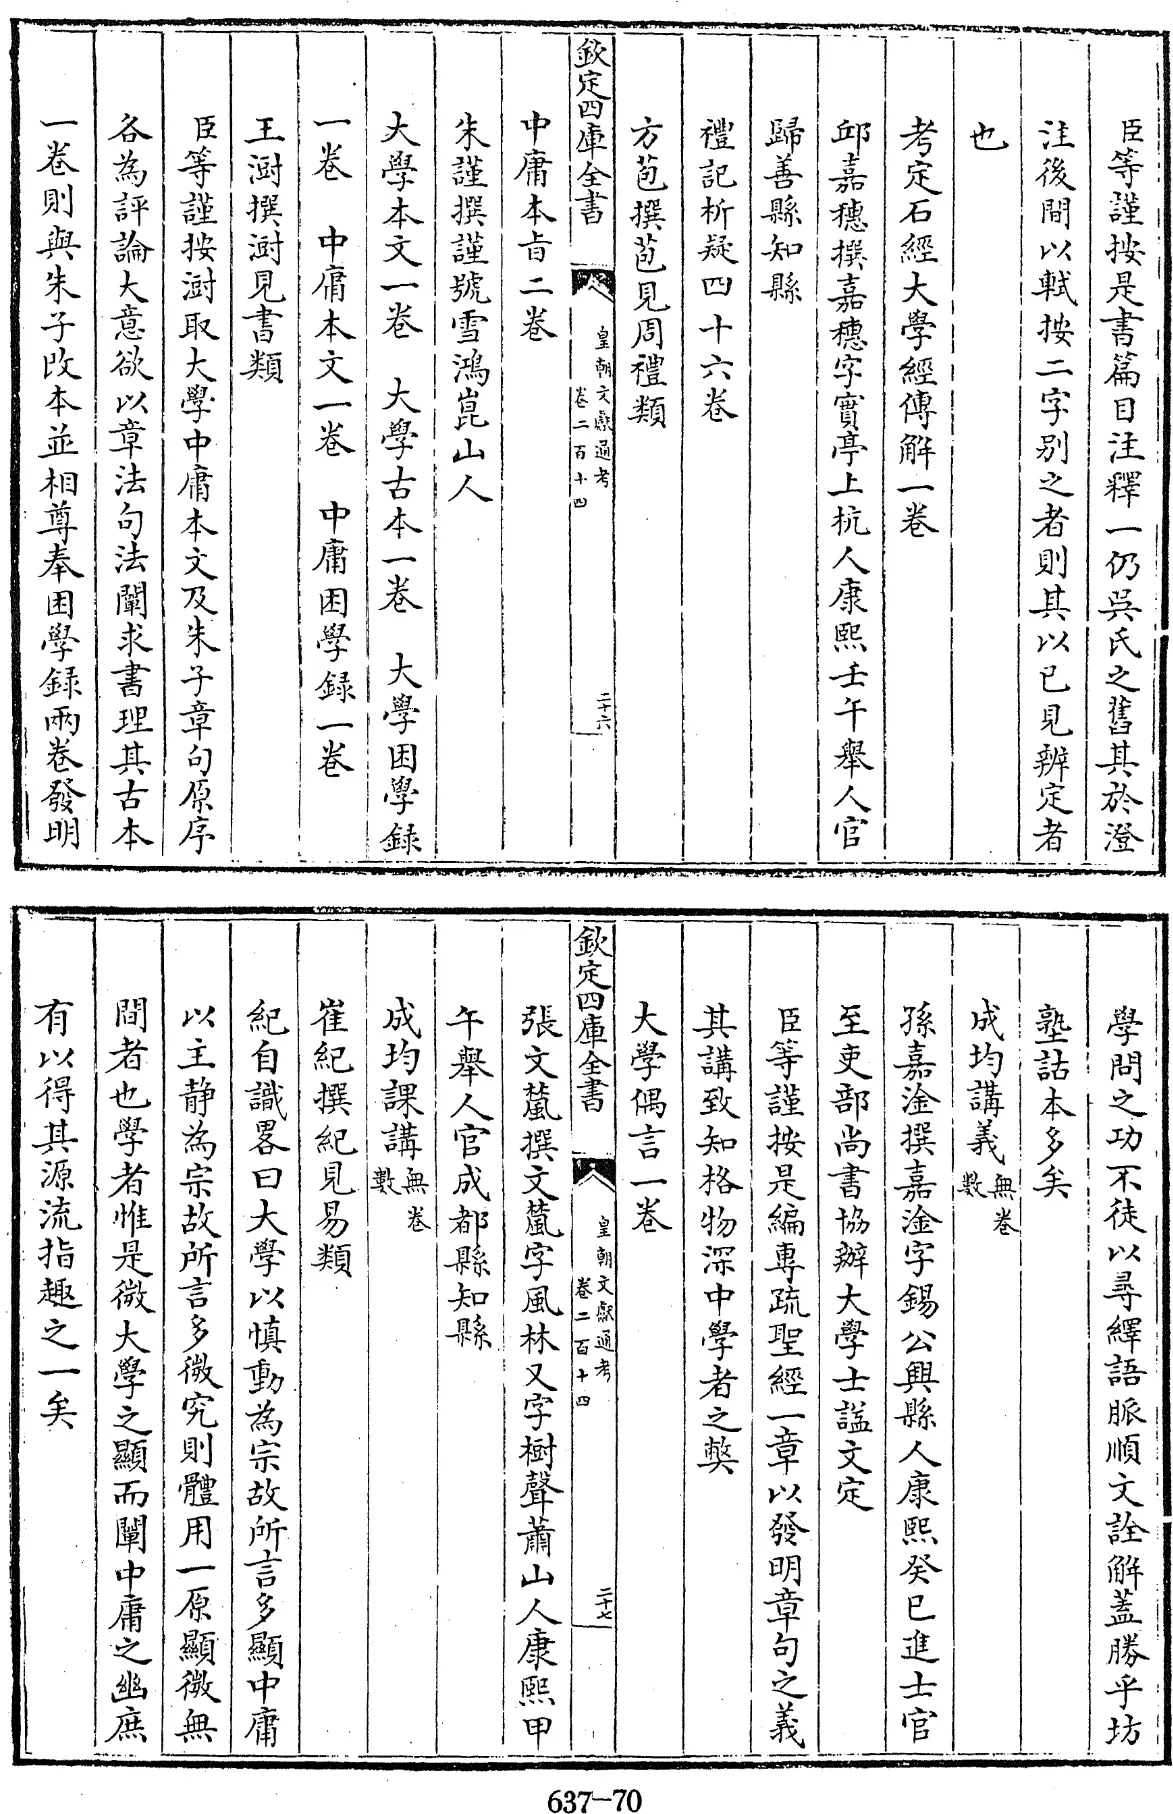 臣等謹按是書篇目注釋一仍吳氏之舊其於澄
注後間以軾按二字别之者則其以已見辨定者
也
考定石經大學經傳解一卷
邱嘉穗撰嘉穗字實亭上杭人康熙壬午舉人官
歸善縣知縣
禮記析疑四十六卷
方苞撰苞見周禮類
欽定四庫全書
皇朝文獻通考
卷二百十四
二十六
中庸本旨二卷
朱謹撰謹號雪鴻崑山人
大學本文一卷　大學古本一卷　大學困學録
一卷　中庸本文一卷　中庸困學録一卷
王澍撰澍見書類
臣等謹按澍取大學中庸本文及朱子章句原序
各為評論大意欲以章法句法闡求書理其古本
一卷則與朱子改本並相尊奉困學録兩卷發明
學問之功不徒以尋繹語脈順文詮解蓋勝乎坊
塾詁本多矣
成均講義無卷數
孫嘉淦撰嘉淦字錫公興縣人康熙癸巳進士官
至吏部尚書協辦大學士諡文定
臣等謹按是編專疏聖經一章以發明章句之義
其講致知格物深中學者之弊
大學偶言一卷
欽定四庫全書
皇朝文獻通考
卷二百十四
二十七
張文虀撰文虀字風林又字樹聲蕭山人康熙甲
午舉人官成都縣知縣
成均課講無卷數
崔紀撰紀見易類
紀自識畧曰大學以慎動為宗故所言多顯中庸
以主静為宗故所言多微究則體用一原顯微無
間者也學者惟是微大學之顯而闡中庸之幽庶
有以得其源流指趣之一矣
637-70